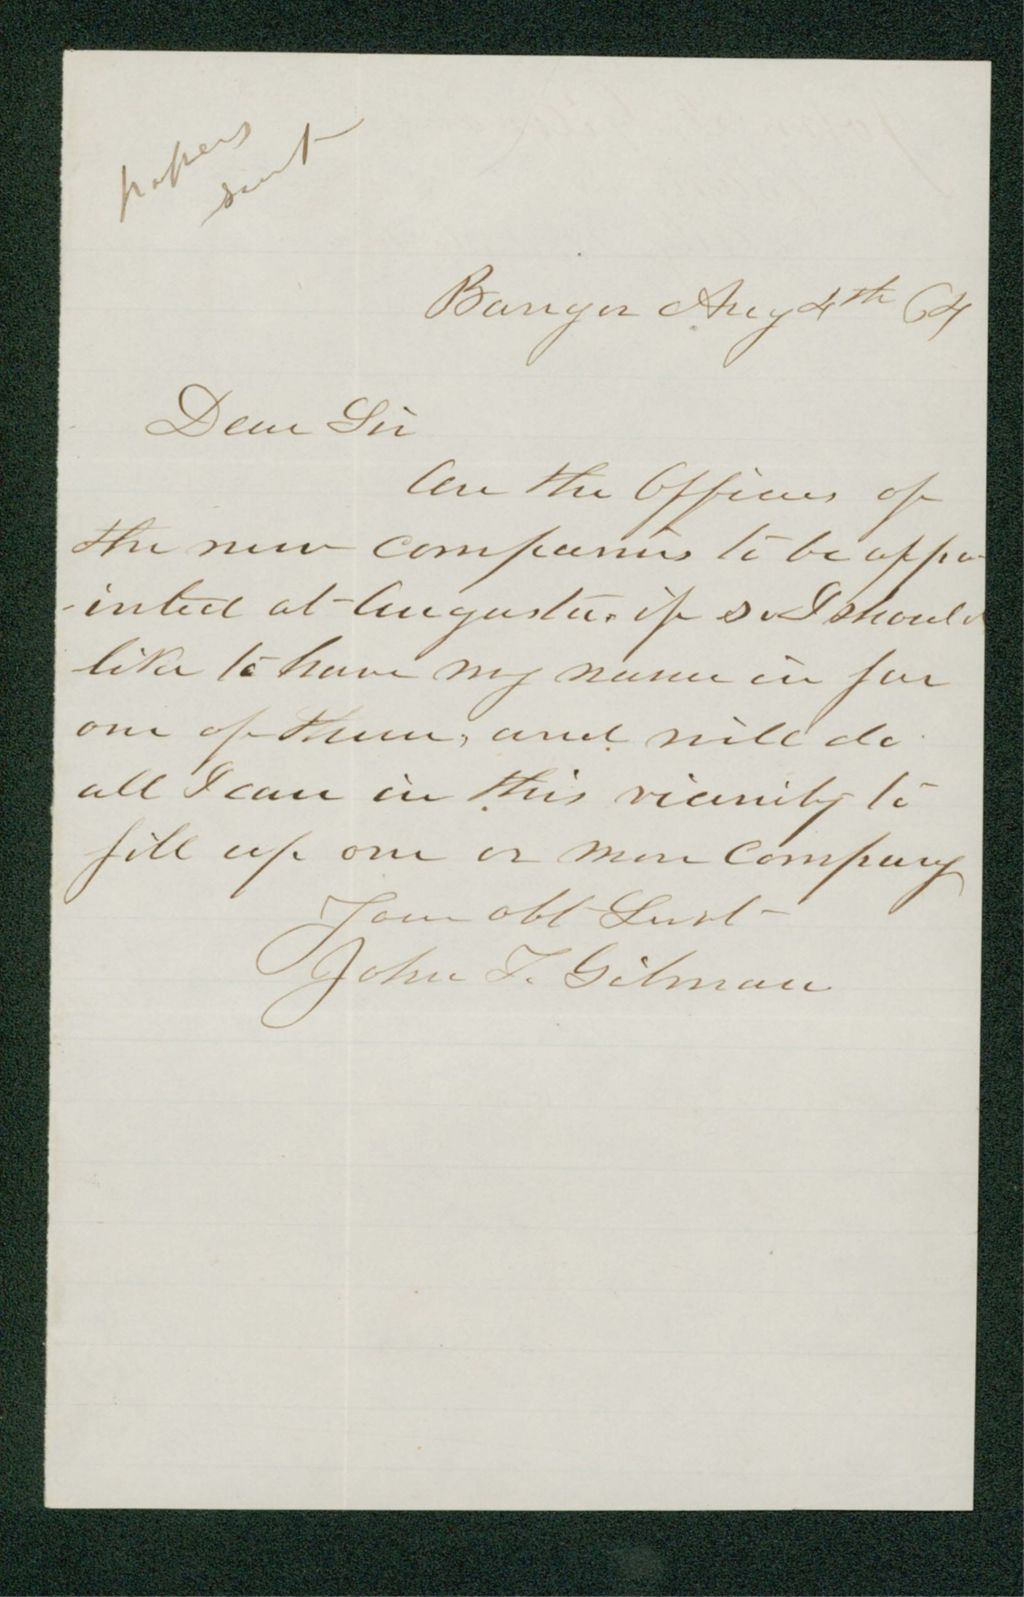 papers
sent
Bangor Aug 4th 64
Dear Sir
Are the Officers of
the new companies to be appo-
-inted at Augusta. if so I should
like to have my name in for
one of them, and will do
all I can in this vicinity to
fill up one or more company
Your obt Servt
John F. Gilman